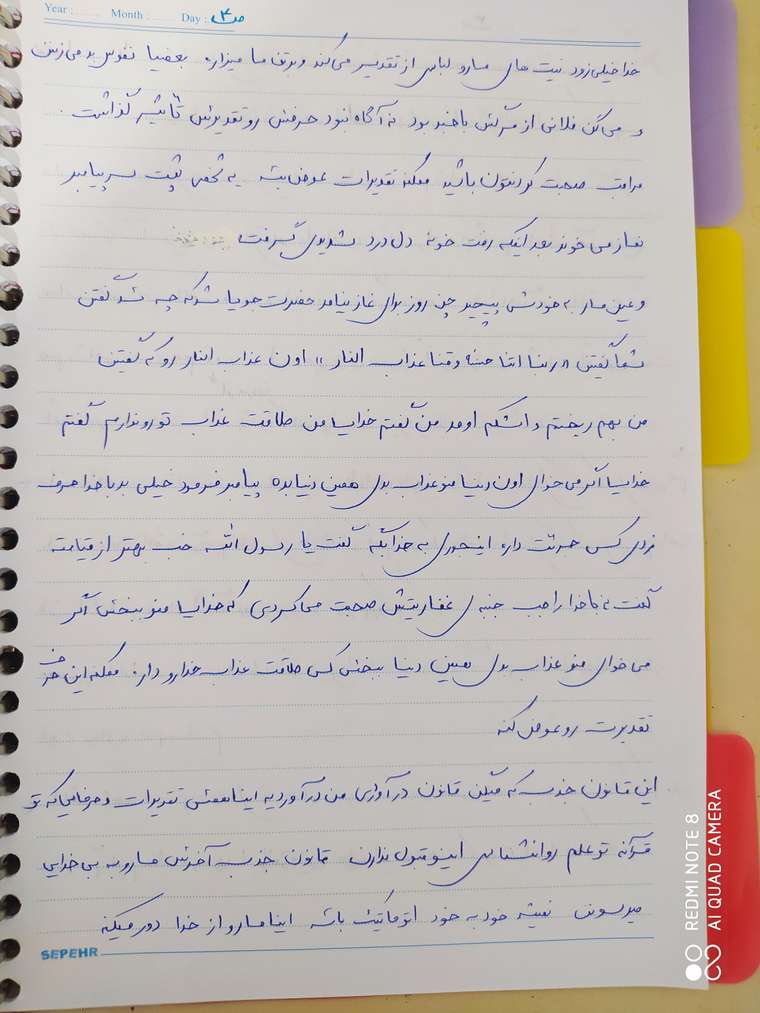 Year : Month : Day : ص۴
خدا خیلی زود نیت های مارو لباس از تقدیر می کند و طرف ما میزاره بعضیا نفوس بد می زنن
و می گن فلانی از مرگش باخبر بود نه آگاه نبود حرفش رو تقدیرش تأثیر گذاشت .
مراقب صحبت کردنتون باشید ممکنه تقدیرات عوض بشه یه شخصی پشت سر پیامبر
نماز می خوند بعد اینکه رفت خونه دل درد شدیدی گرفت
و عین مار به خودش پیچید چن روز برای نماز نیامد حضرت جویا شد که چه شد گفتن
شما گفتین «ربنا اتنا حسنه وقنا عذاب النار» اون عذاب النار رو که گفتین
من بهم ریختم و اشکم اومد من گفتم خدایا من طاقت عذاب تو رو ندارم گفتم
خدایا اگر می خوای اون دنیا منو عذاب بدی همین دنیا بده پیامبر فرمود خیلی بد با خدا حرف
زدی کسی جرئت داره اینجوری به خدا بگه گفت یا رسول الله خب بهتر از قیامته
گفت نه با خدا راجب جنبه ی غفاریتش صحبت می کردی که خدایا منو ببخش اگر
می خوای منو عذاب بدی همین دنیا ببخش کی طاقت عذاب خدا رو داره ممکنه این حرف
تقدیرت رو عوض کنه
این قانون جذب که میگن قانون در آوردی من درآوردیه اینا همش تقدیرات و حرفایی که تو
قرآنه تو علم روانشناسی اینو قبول ندارن قانون جذب آخرش مارو به بی خدایی
میرسونن نمیشه خود به خود اتوماتیک باشه اینا مارو از خدا دور میکنه
SEPEHR
REDMI NOTE 8
AI QUAD CAMERA